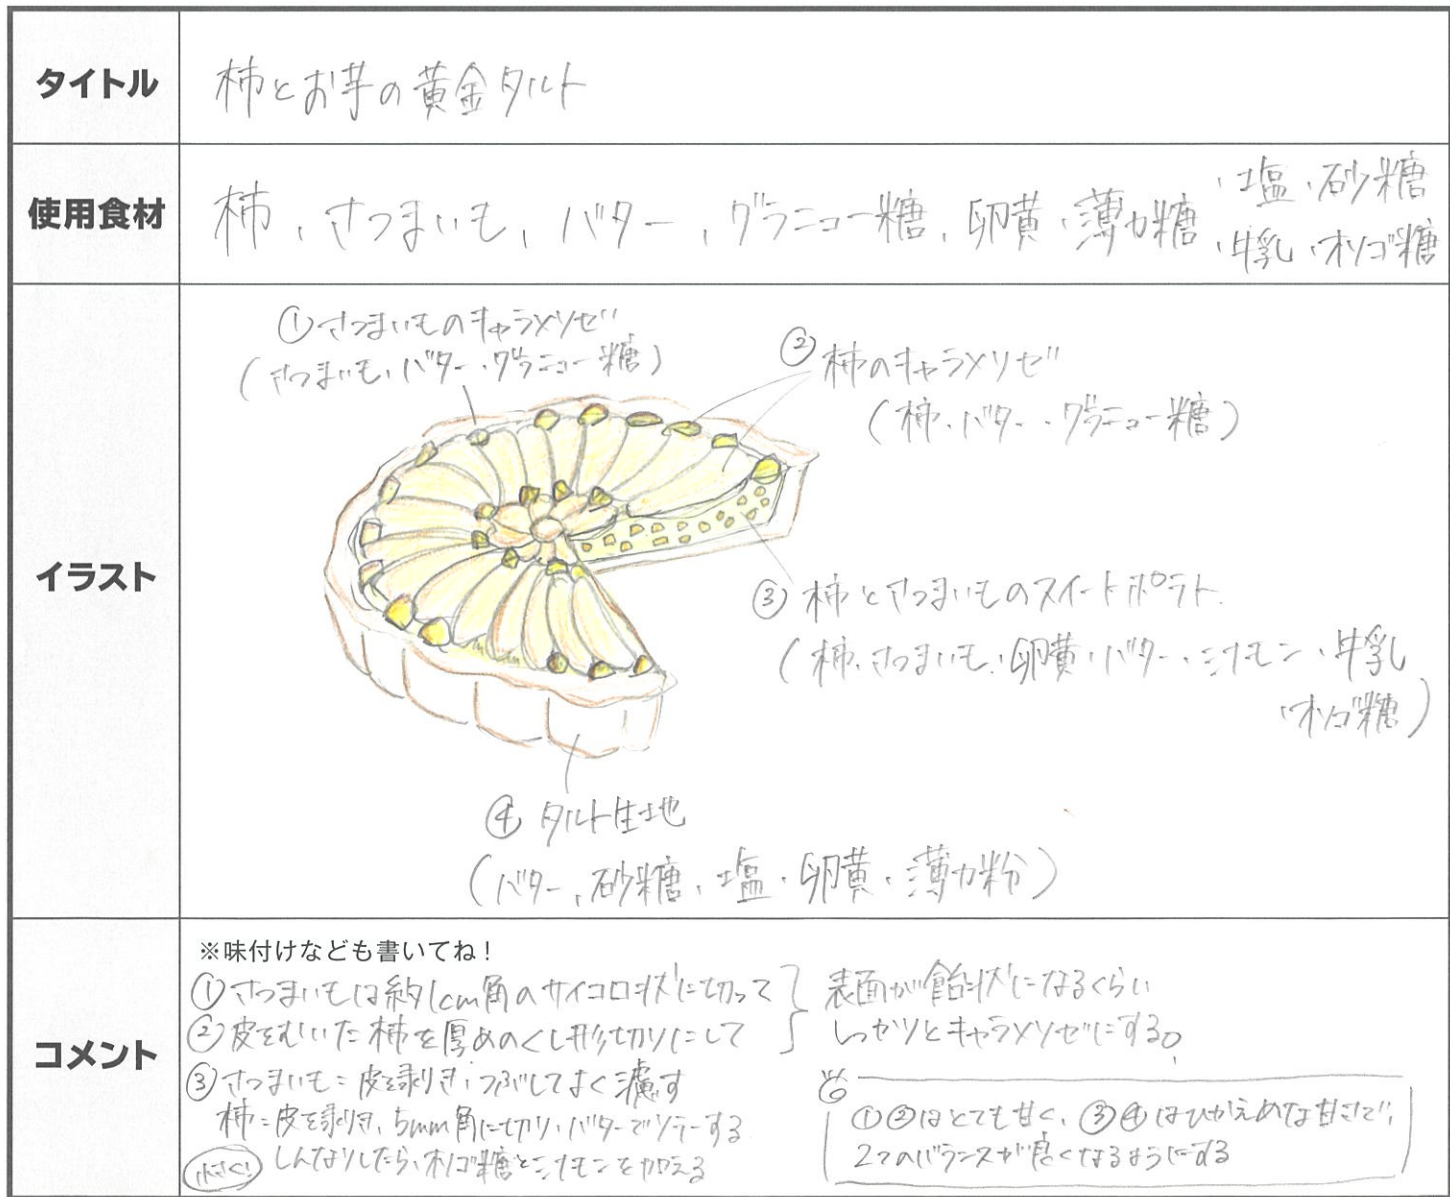 タイトル
柿とお芋の黄金タルト
使用食材
柿、さつまいも、バター、グラニュー糖、卵黄、薄力糖、塩、砂糖
、牛乳、オリゴ糖
イラスト
①さつまいものキャラメリゼ
(さつまいも、バター、グラニュー糖)
②柿のキャラメリゼ
(柿、バター、グラニュー糖)
③柿とさつまいものスイートポテト
(柿、さつまいも、卵黄、バター、シナモン、牛乳
、オリゴ糖)
④タルト生地
(バター、砂糖、塩、卵黄、薄力粉)
コメント
※味付けなども書いてね!
①さつまいもは約1cm角のサイコロ状に切って
②皮をむいた柿を厚めのくし形切りにして
表面が飴状になるくらい
しっかりとキャラメリゼにする。
③さつまいも:皮を剥き、つぶしてよく濾す
柿:皮を剥き、5mm角に切り、バターでソテーする
小さく! しんなりしたら、オリゴ糖とシナモンを加える
①②はとても甘く、③④はひかえめな甘さで、
2つのバランスが良くなるようにする